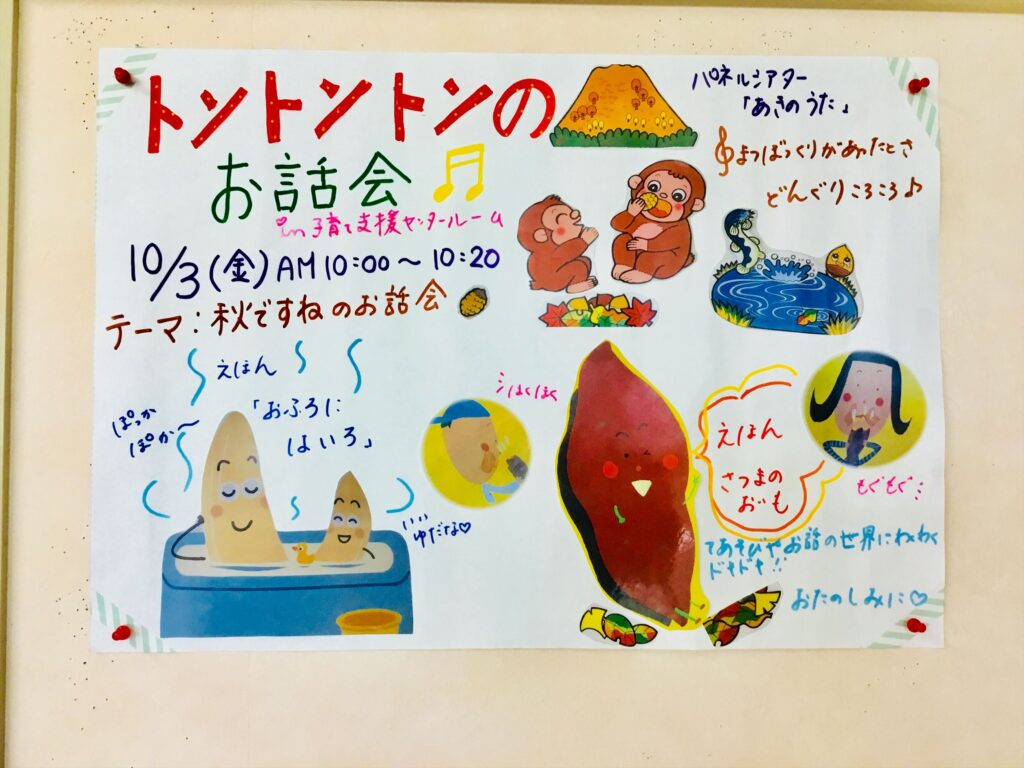 トントントンの
お話会
in 子育て支援センタールーム
10/3(金)AM10:00〜10:20
テーマ:秋ですねのお話会
パネルシアター
「あきのうた」
まつぼっくりがあったとさ
どんぐりころころ♪
えほん
「おふろに
はいろ」
ぽっか
ぽか〜
いい
ゆだな♡
ほくほく
えほん
さつまの
おいも
もぐもぐ
てあそびやお話の世界にわくわく
ドキドキ!!
おたのしみに♡